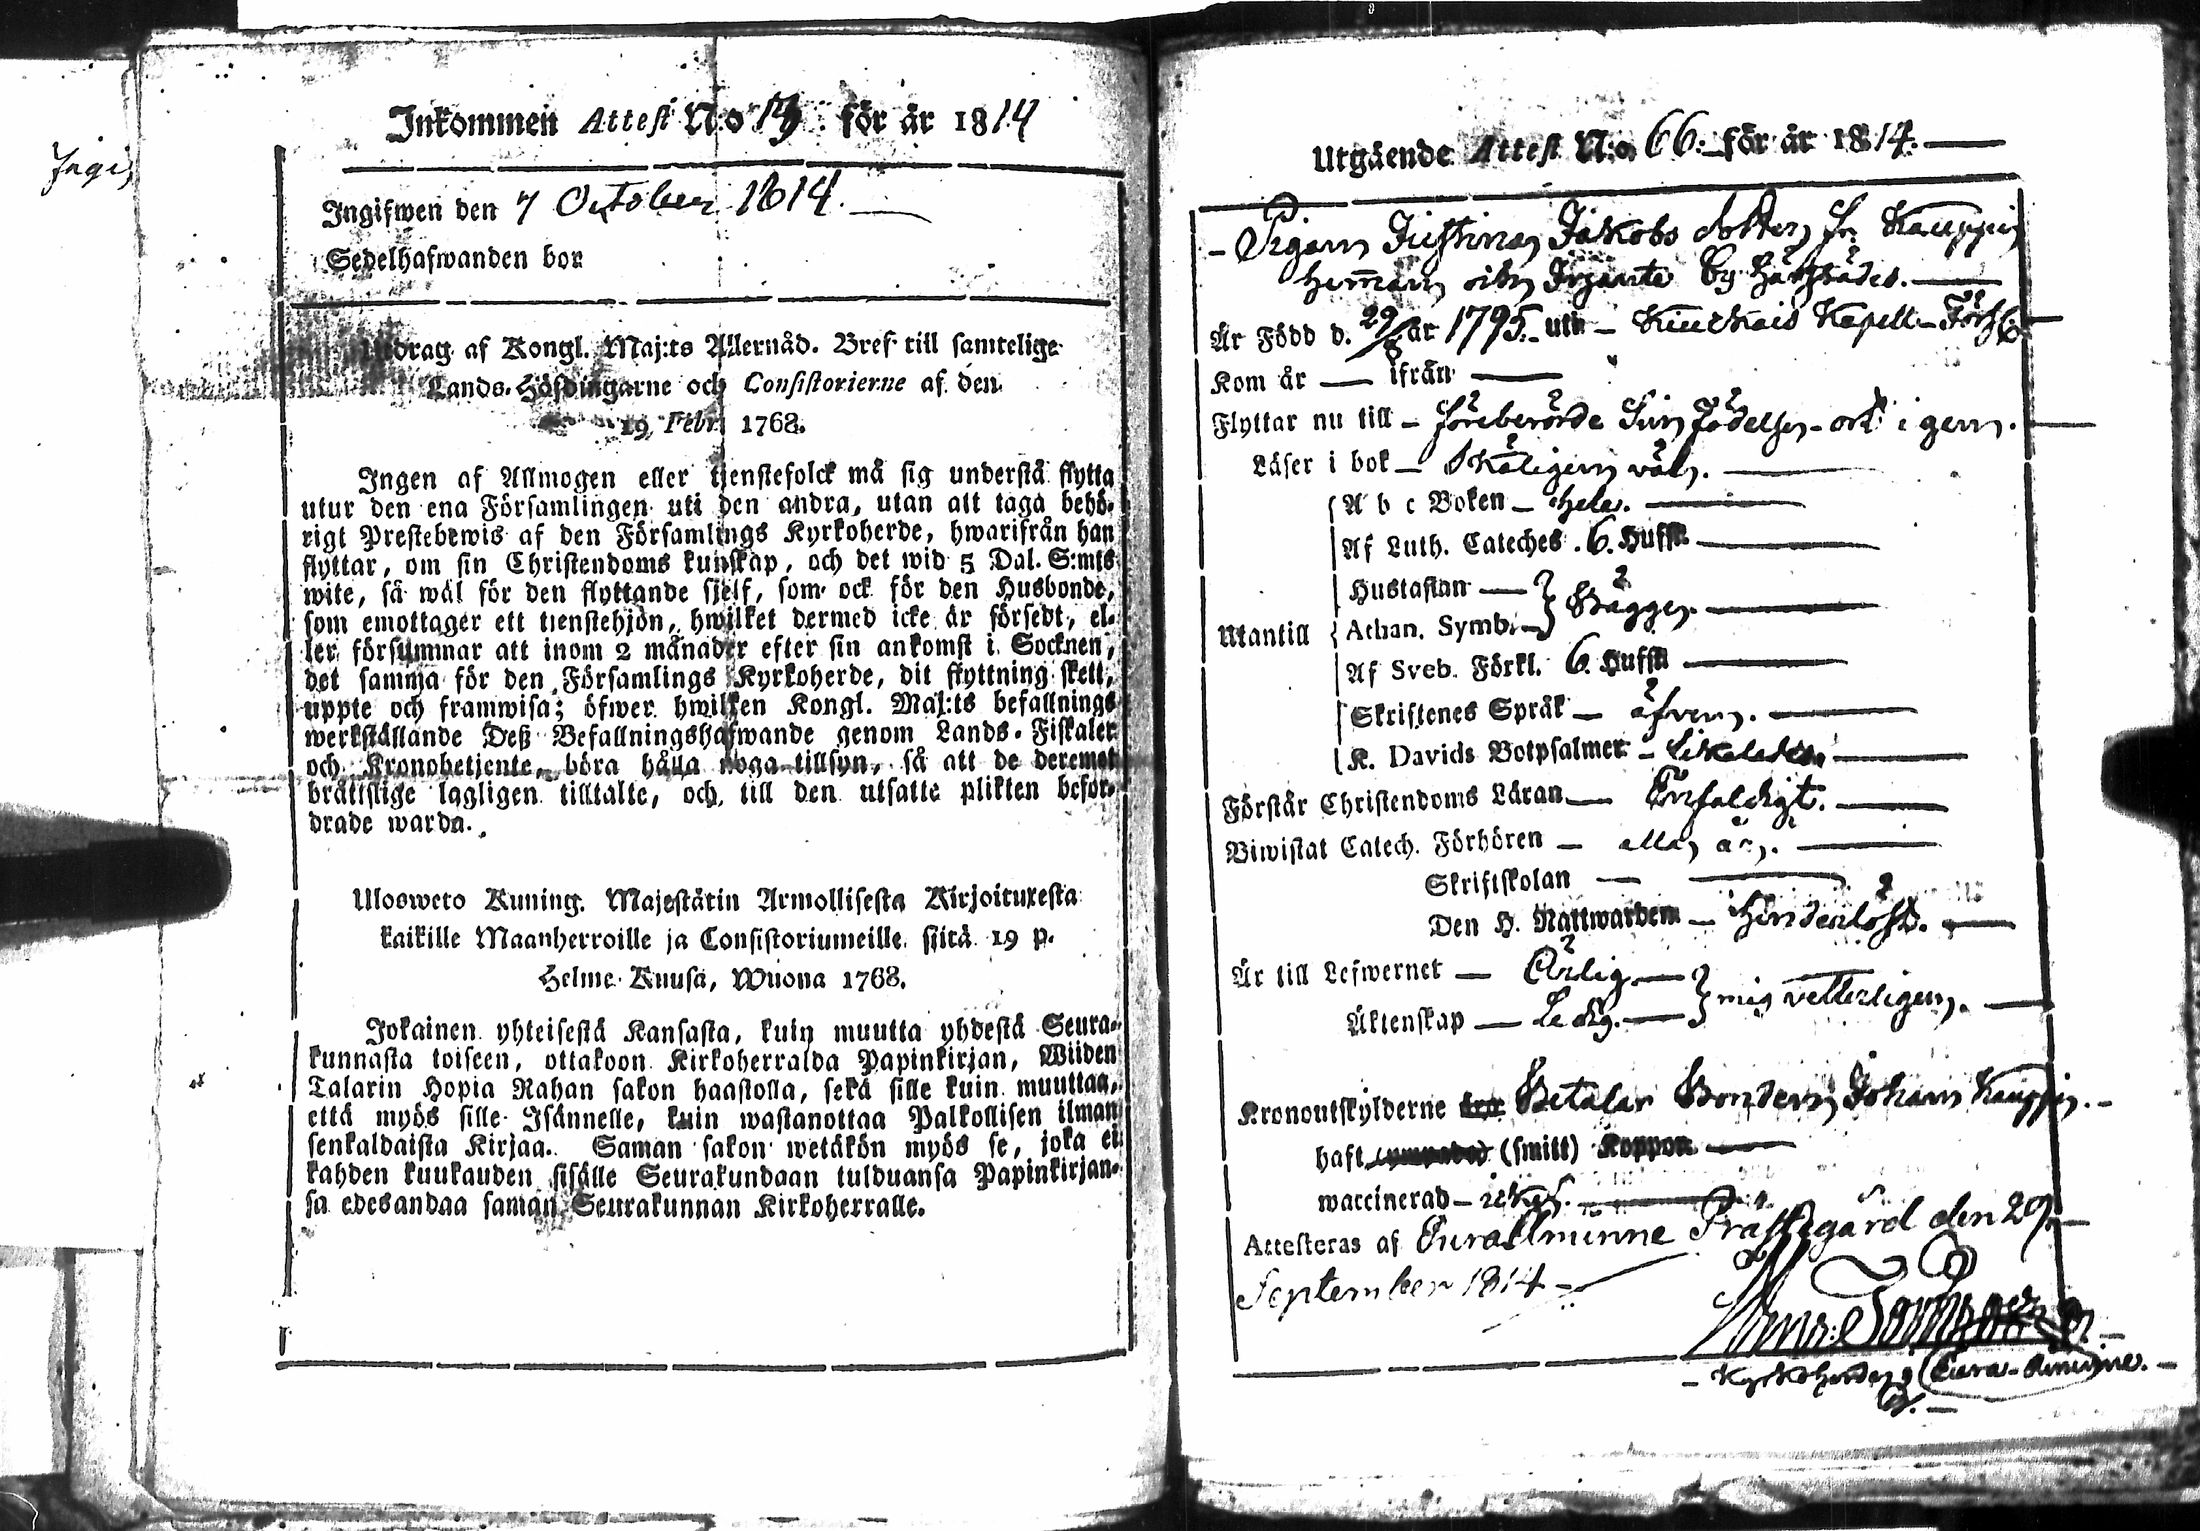 Ingif
Inkommen Attest N:o 19 för år 1814
Ingifwen den 7 October 1814.
Sedelhafwanden bor
Utdrag af Kongl. Maj:ts Allernåd. Bref till samtelige
Lands-Höfdingarne och Consistorierne af den
19 Febr. 1768.
Ingen af Allmogen eller tjenstefolck må sig understå flytta
utur den ena Församlingen uti den andra, utan att taga behö-
rigt Prestebewis af den Församlings Kyrkoherde, hwarifrån han
flyttar, om sin Christendoms kunskap, och det wid 5 Dal. S:mts
wite, så wäl för den flyttande sjelf, som ock för den Husbonde,
som emottager ett tienstehjon, hwilket dermed icke är försedt, el-
ler försummar att inom 2 månader efter sin ankomst i Socknen,
det samma för den Församlings Kyrkoherde, dit flyttning skett,
uppte och framwisa; öfwer hwilken Kongl. Maj:ts befallnings
werkställande Deß Befallningshafwande genom Lands-Fiskaler
och Kronobetjente, böra hålla noga tillsyn, så att de deremot
bråttslige lagligen tilltalte, och till den utsatte plikten befor-
drade warda.
Ulosweto Kuning. Majestätin Armollisesta Kirjoituxesta
kaikille Maanherroille ja Consistoriumeille siitä 19 p.
Helme-Kuusa, Wuona 1768.
Jokainen yhteisestä Kansasta, kuin muutta yhdestä Seura-
kunnasta toiseen, ottakoon Kirkoherralda Papinkirjan, Wiiden
Talarin Hopia Rahan sakon haastolla, sekä sille kuin muuttaa,
että myös sille Isännelle, kuin wastanottaa Palkollisen ilman
senkaldaista Kirjaa. Saman sakon wetäkön myös se, joka ei
kahden kuukauden sisälle Seurakundaan tulduansa Papinkirjan-
sa edesandaa saman Seurakunnan Kirkoherralle.
Utgående Attest N:o 66. för år 1814.
Pigan Justina Jakobs dotter fr. Kauppi
hemman By
Är Född d. 29/8 år 1795. uti Kiukais Kapell-Förs.
Kom år — ifrån —
Flyttar nu till föreberörde Sin födelse-ort igen.
Läser i bok — Skäligen väl.
A b c Boken — hela.
Af Luth. Cateches. 6. Hufst.
Hustaflan —
Utantill Athan. Symb. — Bägge.
Af Sveb. Förkl. 6. Hufst.
Skriftenes Språk — äfven.
K. Davids Botpsalmer —
Förstår Christendoms Läran — Enfaldigt.
Biwistat Catech. Förhören — alla år.
Skriftskolan —
Den H. Nattwarden — hinderlöst.
Är till Lefwernet — Ärlig — mig vetterligen.
Äktenskap — Ledig.
Kronoutskylderne Betalar Bonden Johan Kauppi.
haft (smitt) Koppor
waccinerad — icke.
Attesteras af Euraåminne Prästegård den 29
September 1814
Kyrkoherde i Eura-Åminne.